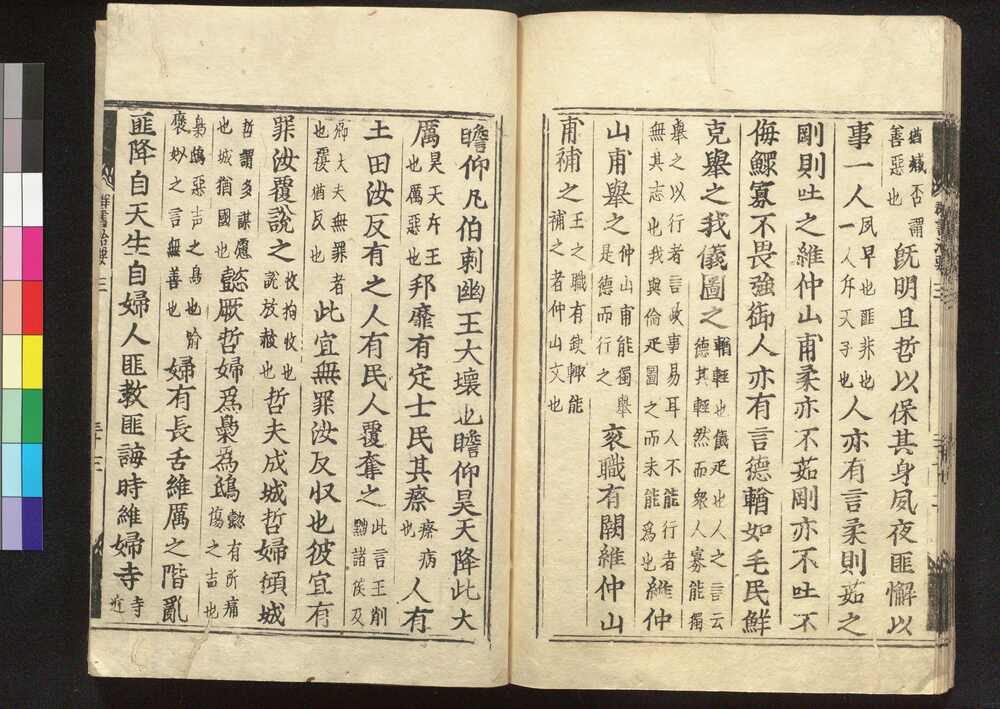 猶臧否謂
善惡也
既明且哲以保其身夙夜匪懈以
事一人
夙早也匪非也
一人斥天子也
人亦有言柔則茹之
剛則吐之維仲山甫柔亦不茹剛亦不吐不
侮鰥寡不畏強御人亦有言德輶如毛民鮮
克舉之我儀圖之
輶輕也儀疋也人之言云
德其輕然而衆人寡能獨
舉之以行者言政事易耳人不能行者
無其志也我與倫疋圖之而未能爲也
維仲
山甫舉之
仲山甫能獨舉
是德而行之
衮職有闕維仲山
甫補之
王之職有缺輒能
補之者仲山父也
瞻仰凡伯刺幽王大壞也瞻仰昊天降此大
厲
昊天斥王
也厲惡也
邦靡有定士民其瘵
瘵病
也
人有
土田汝反有之人有民人覆奪之
此言王削
黜諸侯及
卿大夫無罪者
也覆猶反也
此宜無罪汝反収也彼宜有
罪汝覆說之
收拘收也
說放赦也
哲夫成城哲婦傾城
哲謂多謀慮
也城猶國也
懿厥哲婦爲梟爲鴟
懿有所痛
傷之聲也
梟鴟惡声之鳥也喻
褒姒之言無善也
婦有長舌維厲之階亂
匪降自天生自婦人匪教匪誨時維婦寺
寺
近
群書治要
三
三十三